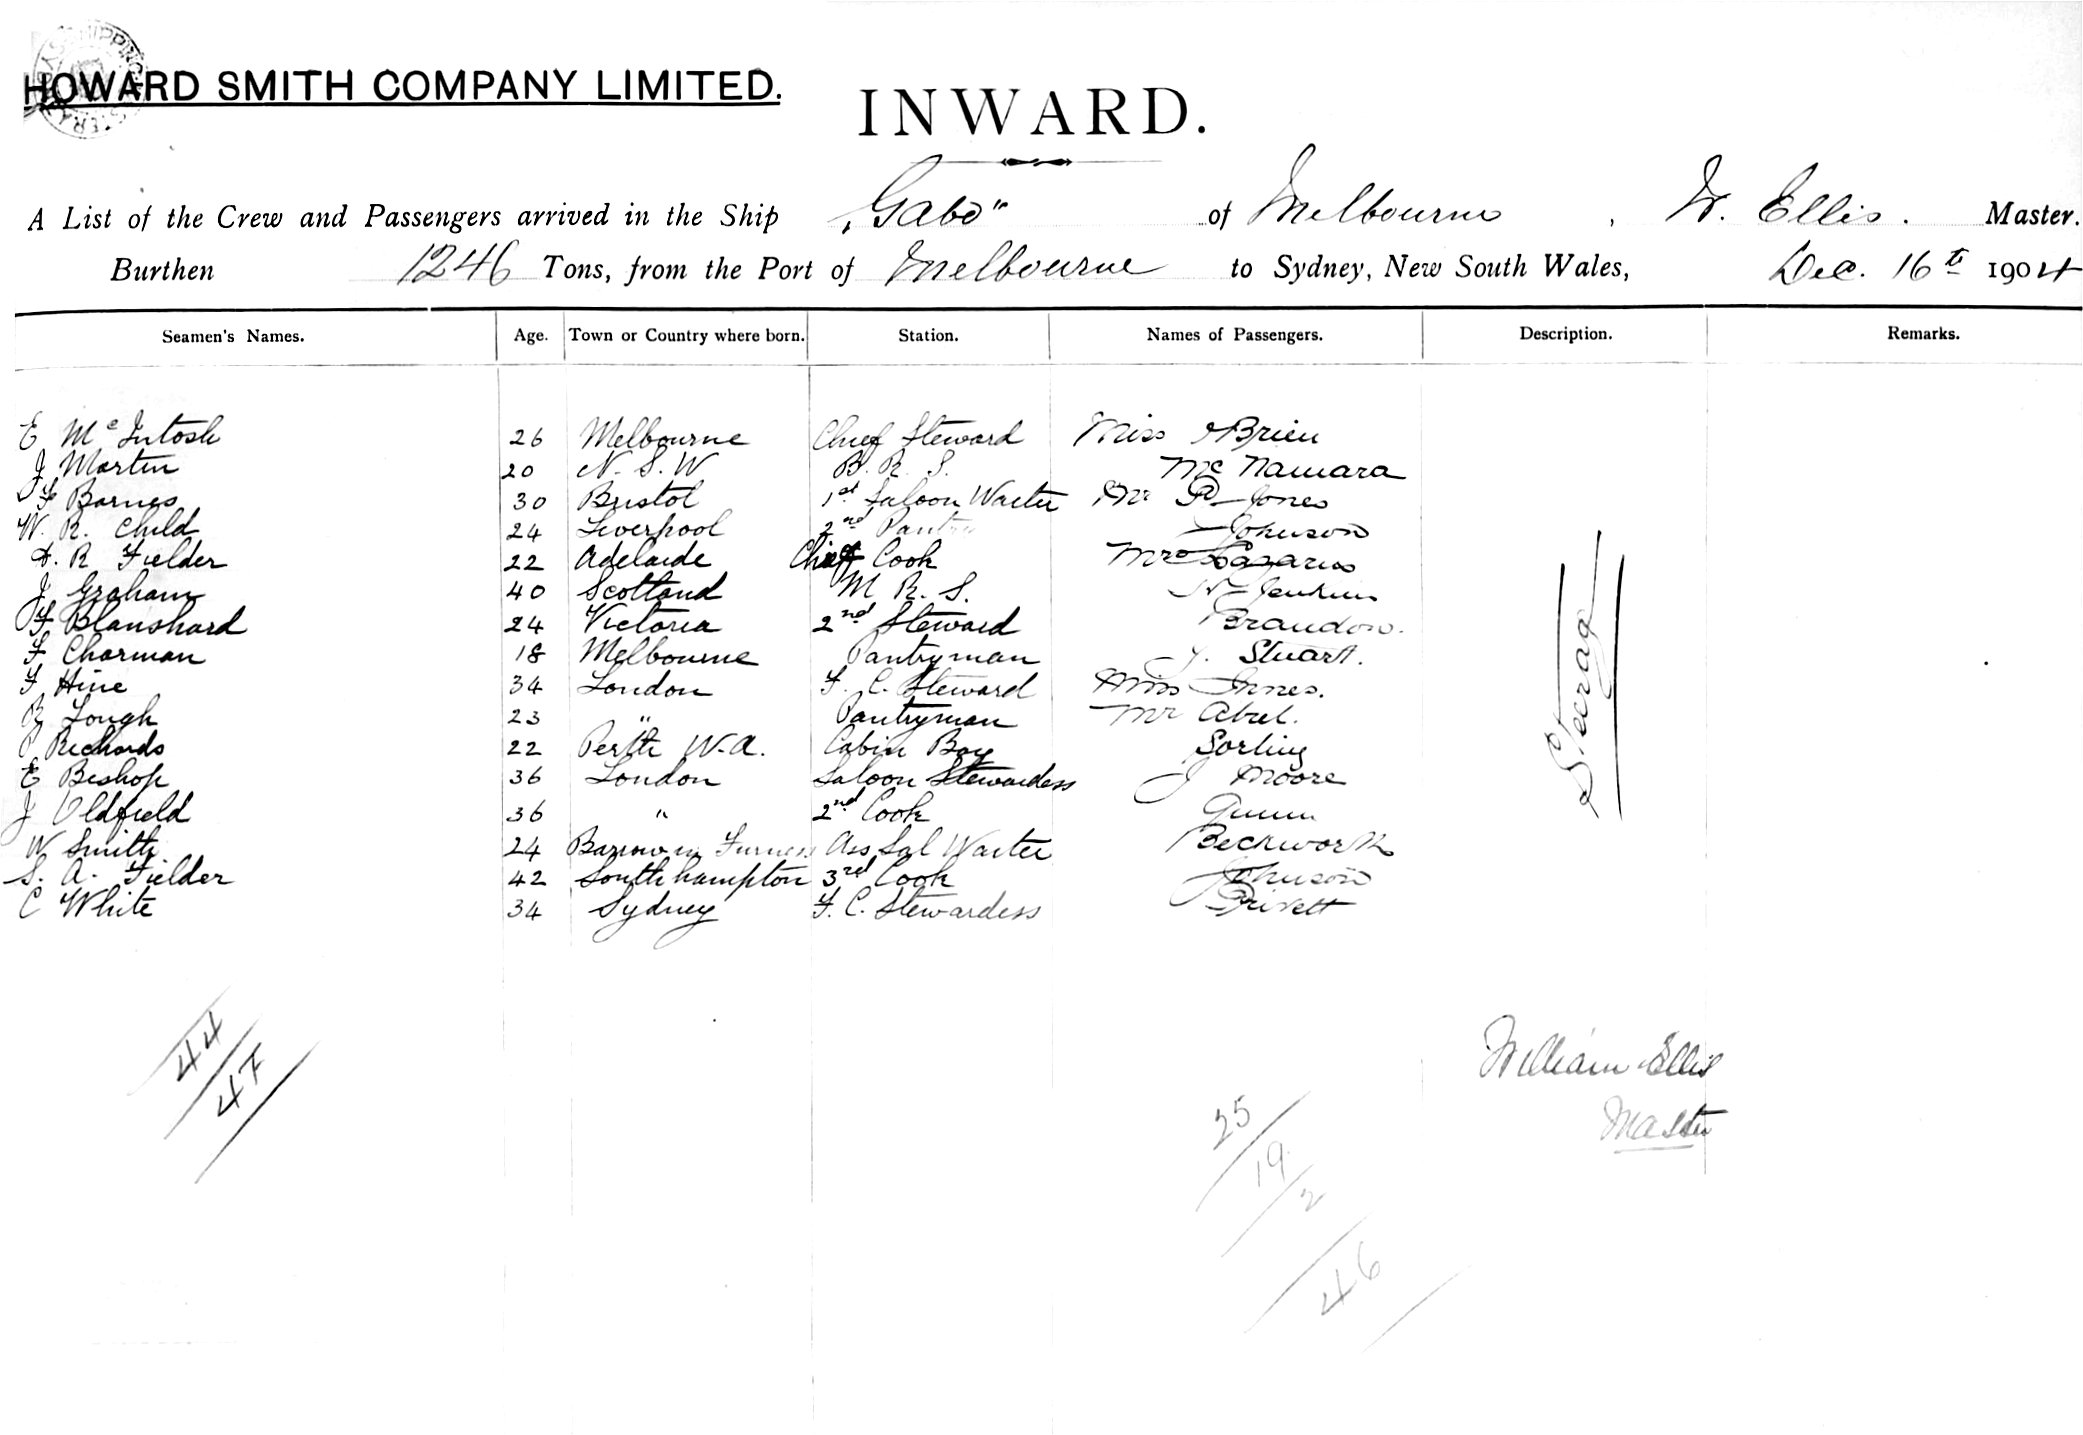 HOWARD SMITH COMPANY LIMITED.
INWARD.
A List of the Crew and Passengers arrived in the Ship "Gabo" of Melbourne, W. Ellis. Master.
Burthen 1246 Tons, from the Port of Melbourne to Sydney, New South Wales, Dec. 16th 1904
Seamen's Names. Age. Town or Country where born. Station. Names of Passengers. Description. Remarks.
E McIntosh 26 Melbourne Chief Steward Miss OBrien
J Martin 20 N. S. W B. R. S. Mc Namara
F Barnes 30 Bristol 1st Saloon Waiter Mr Jones
W. R. Child 24 Liverpool 2nd Pantry Johnson
A. R Fielder 22 Adelaide Chief Cook Mrs Lazarus
J Graham 40 Scotland M R. S. Jenkins
F Blanshard 24 Victoria 2nd Steward Brandon.
F Charman 18 Melbourne Pantryman Stuart.
F Hine 34 London F. C. Steward Miss Innes.
R Lough 23 " Pantryman Mr Abel.
P Richards 22 Perth W.A. Cabin Boy Sorling
E Bishop 36 London Saloon Stewardess J Moore
J Oldfield 36 " 2nd Cook Gunn
W Smith 24 Barrow in Furness Ass Sal Waiter Beckworth
S. A. Fielder 42 Southhampton 3rd Cook Johnson
C White 34 Sydney F. C. Stewardess Privett
Steerag
44
47
William Ellis
Master
25
19
2
46